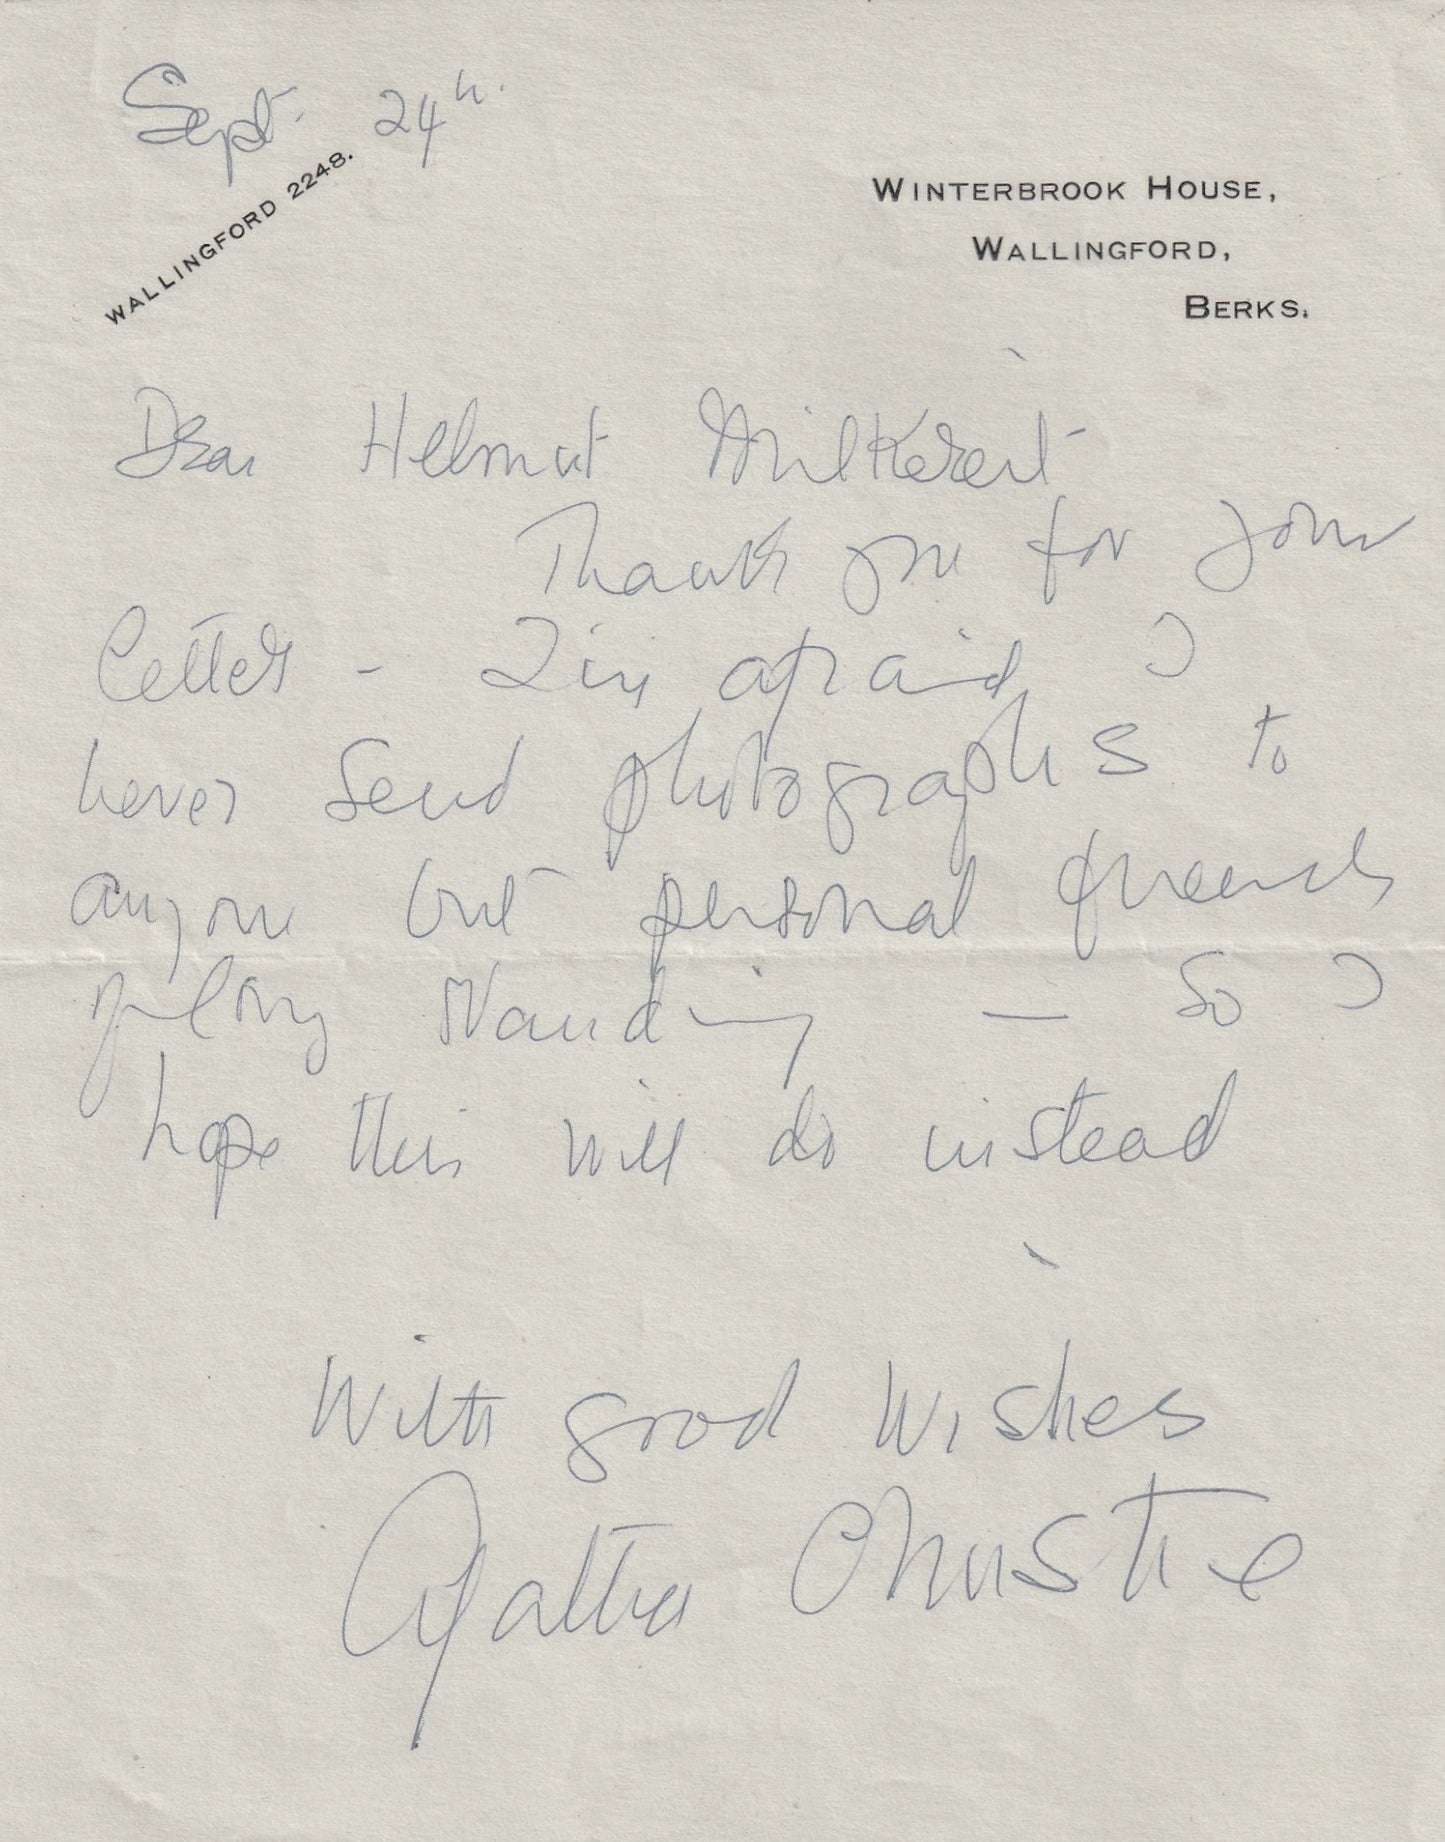 Sept. 24th.
WALLINGFORD 2248.
WINTERBROOK HOUSE,
WALLINGFORD,
BERKS.
Dear Helmut
Thank you for your
letter - I'm afraid I
never send photographs to
anyone but personal friends
of long standing — So I
hope this will do instead
With good wishes
Agatha Christie